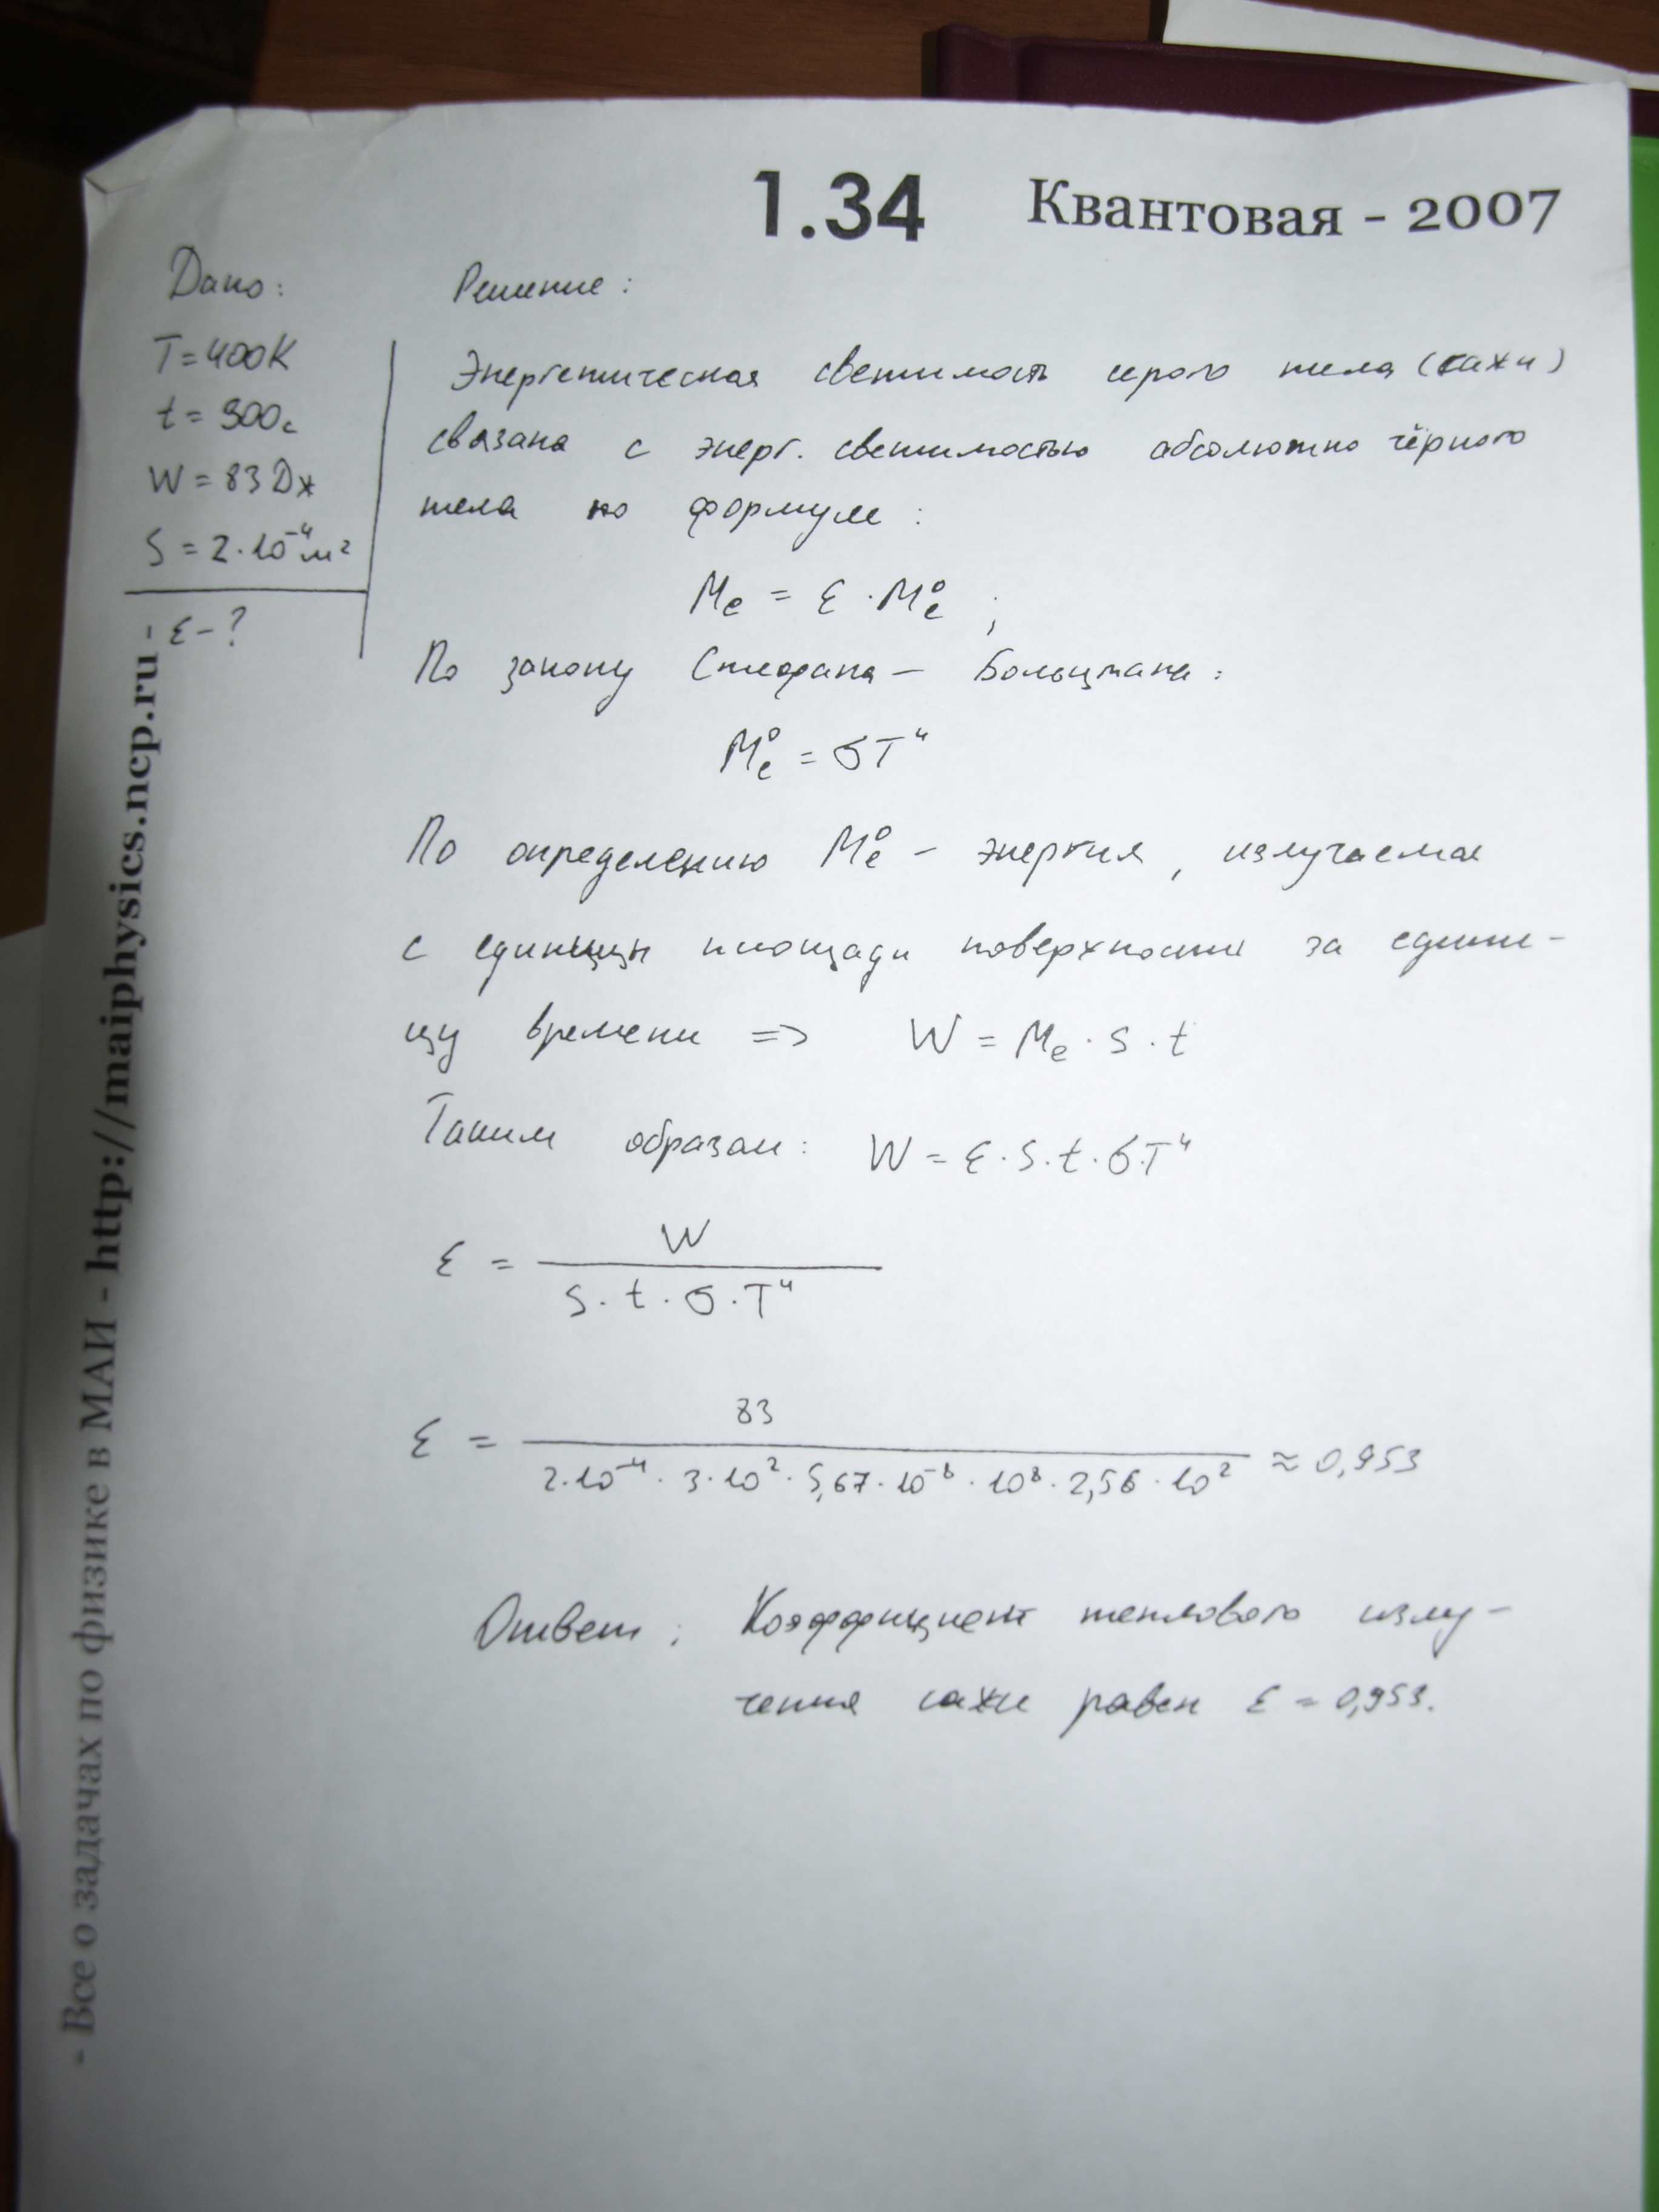 1.34 Квантовая - 2007
Дано:
T = 400К
t = 300с
W = 83 Дж
S = 2·10⁻⁴м²
ε - ?
Решение:
Энергетическая светимость серого тела (сажи)
связана с энерг. светимостью абсолютно чёрного
тела по формуле:
Mₑ = ε · Mₑ⁰ ;
По закону Стефана – Больцмана:
Mₑ⁰ = σT⁴
По определению Mₑ⁰ – энергия, излучаемая
с единицы площади поверхности за едини-
цу времени => W = Mₑ · S · t
Таким образом: W = ε · S · t · σ · T⁴
ε = W / (S · t · σ · T⁴)
ε = 83 / (2·10⁻⁴ · 3·10² · 5,67·10⁻⁸ · 10⁸ · 2,56 · 10²) ≈ 0,953
Ответ: Коэффициент теплового излу-
чения сажи равен ε = 0,953.
- Все о задачах по физике в МАИ - http://maiphysics.ncp.ru -